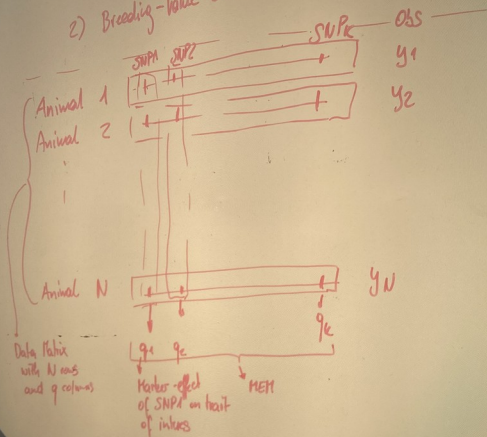 2) Breeding-Value
SNP1 SNP2 SNPk Obs
Animal 1 y1
Animal 2 y2
Animal N yN
q1 q2 qk
Data Matrix
with N rows
and q columns
Marker-effect
of SNP1 on trait
of interes
MEM